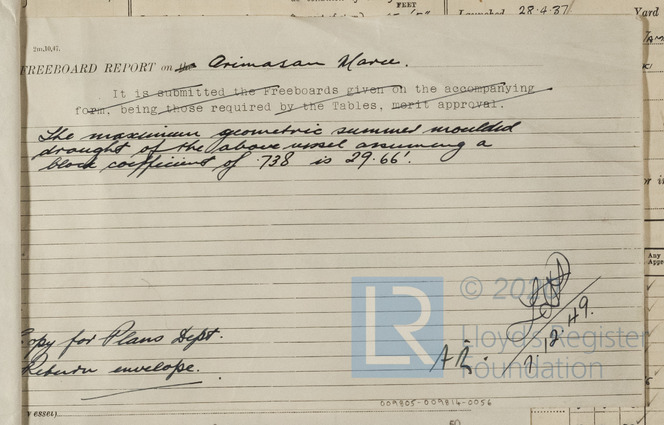 FEET
Launched 28.4.37
Yard
2m,10,47.
FREEBOARD REPORT on the Arimasan Maru.
It is submitted the Freeboards given on the accompanying
form, being those required by the Tables, merit approval.
The maximum geometric summer moulded
draught of the above vessel assuming a
block coefficient of .738 is 29.66'.
Copy for Plans Dept.
Return envelope.
LR
© 20
Lloyd's Register
Foundation
1.12.49.
009805-009814-0056
Any
Appr